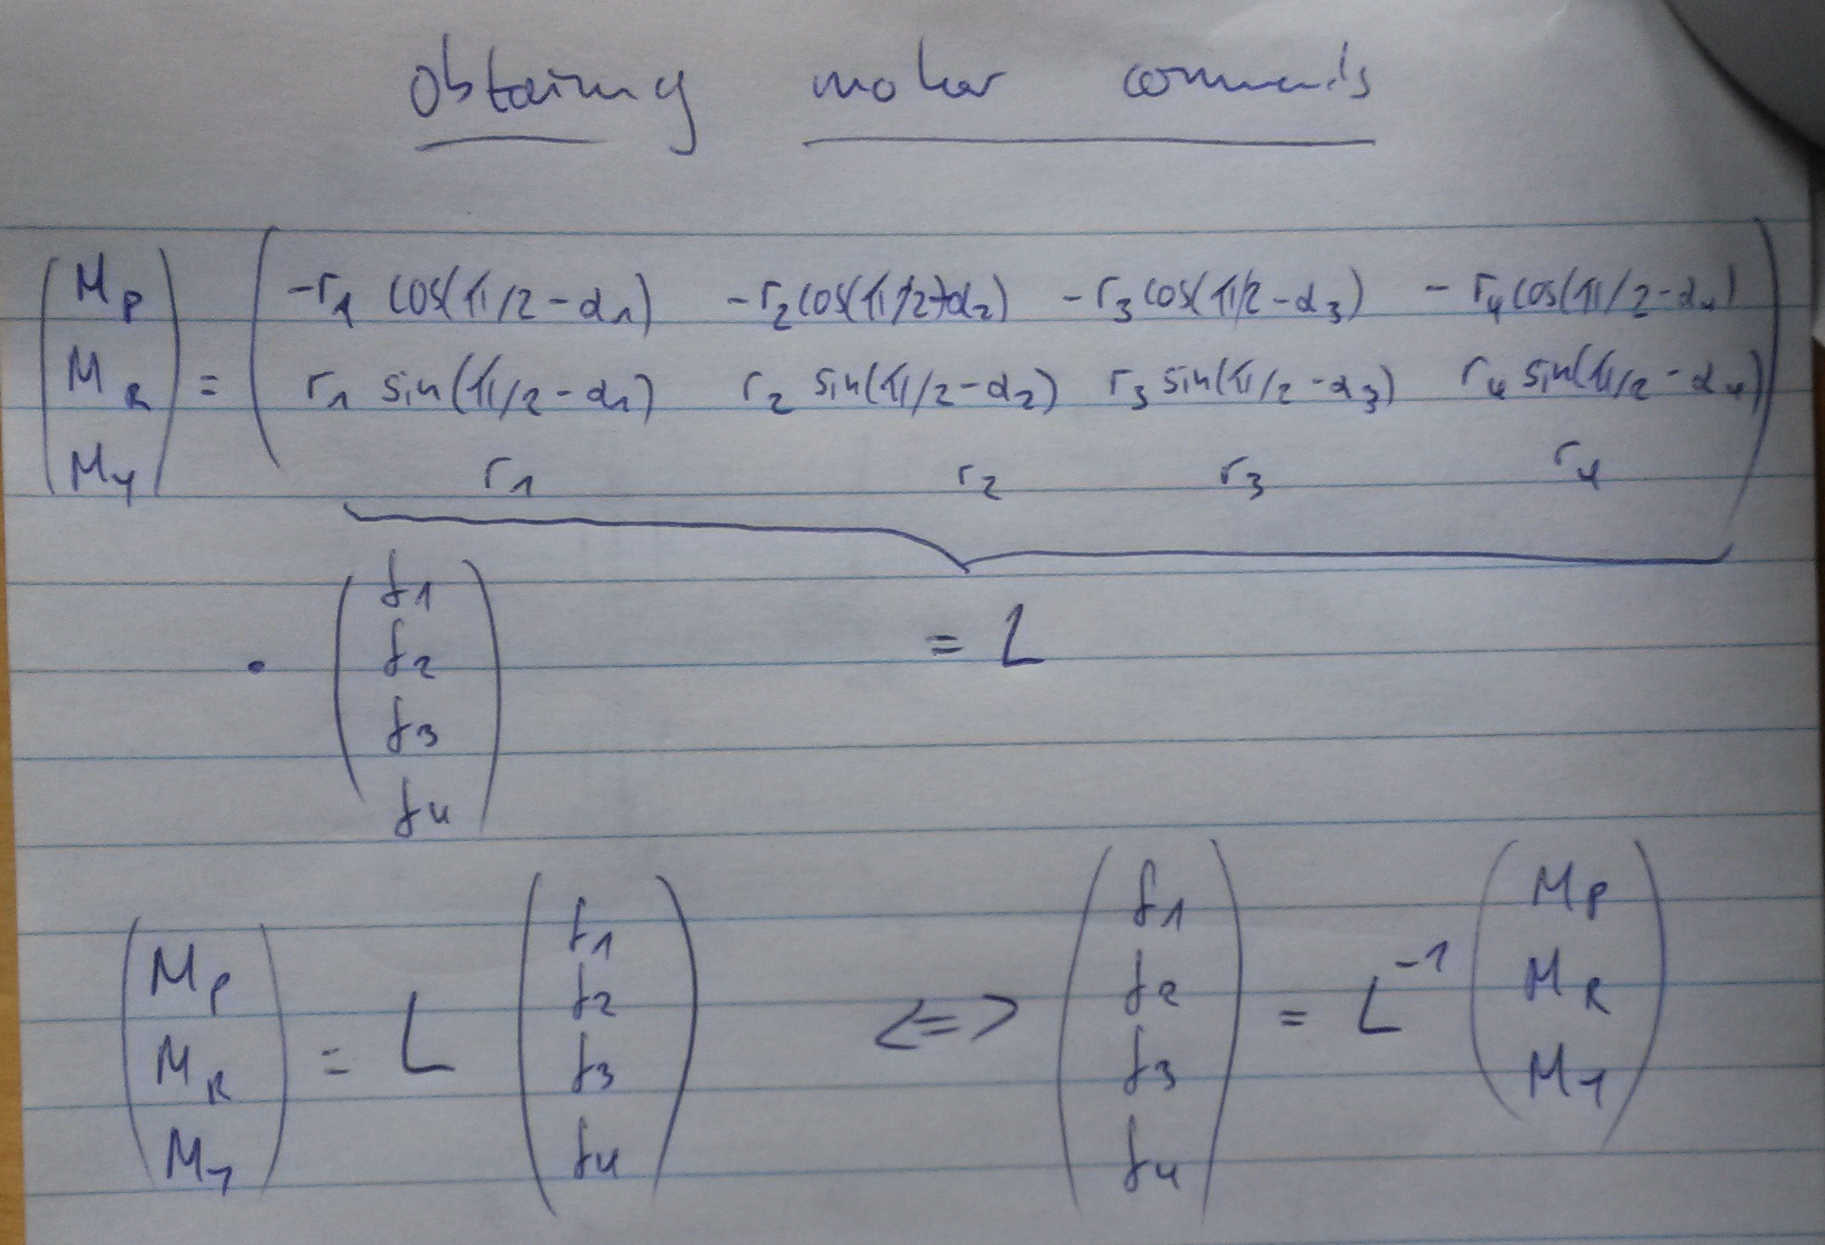 Obtaining motor commands
(M_P M_R M_Y) = (-r_1 cos(π/2-α_1) -r_2 cos(π/2+α_2) -r_3 cos(π/2-α_3) -r_4 cos(π/2-α_4)
r_1 sin(π/2-α_1) r_2 sin(π/2-α_2) r_3 sin(π/2-α_3) r_4 sin(π/2-α_4)
r_1 r_2 r_3 r_4)
· (f_1 f_2 f_3 f_4) = L
(M_P M_R M_Y) = L (f_1 f_2 f_3 f_4) <=> (f_1 f_2 f_3 f_4) = L^-1 (M_P M_R M_Y)